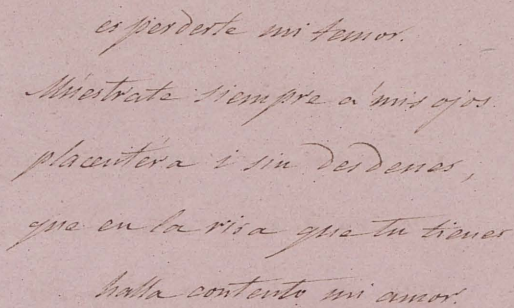 es perderte mi temor.
Muéstrate siempre a mis ojos
placentera i sin desdenes,
que en la risa que tu tienes
halla contento mi amor.